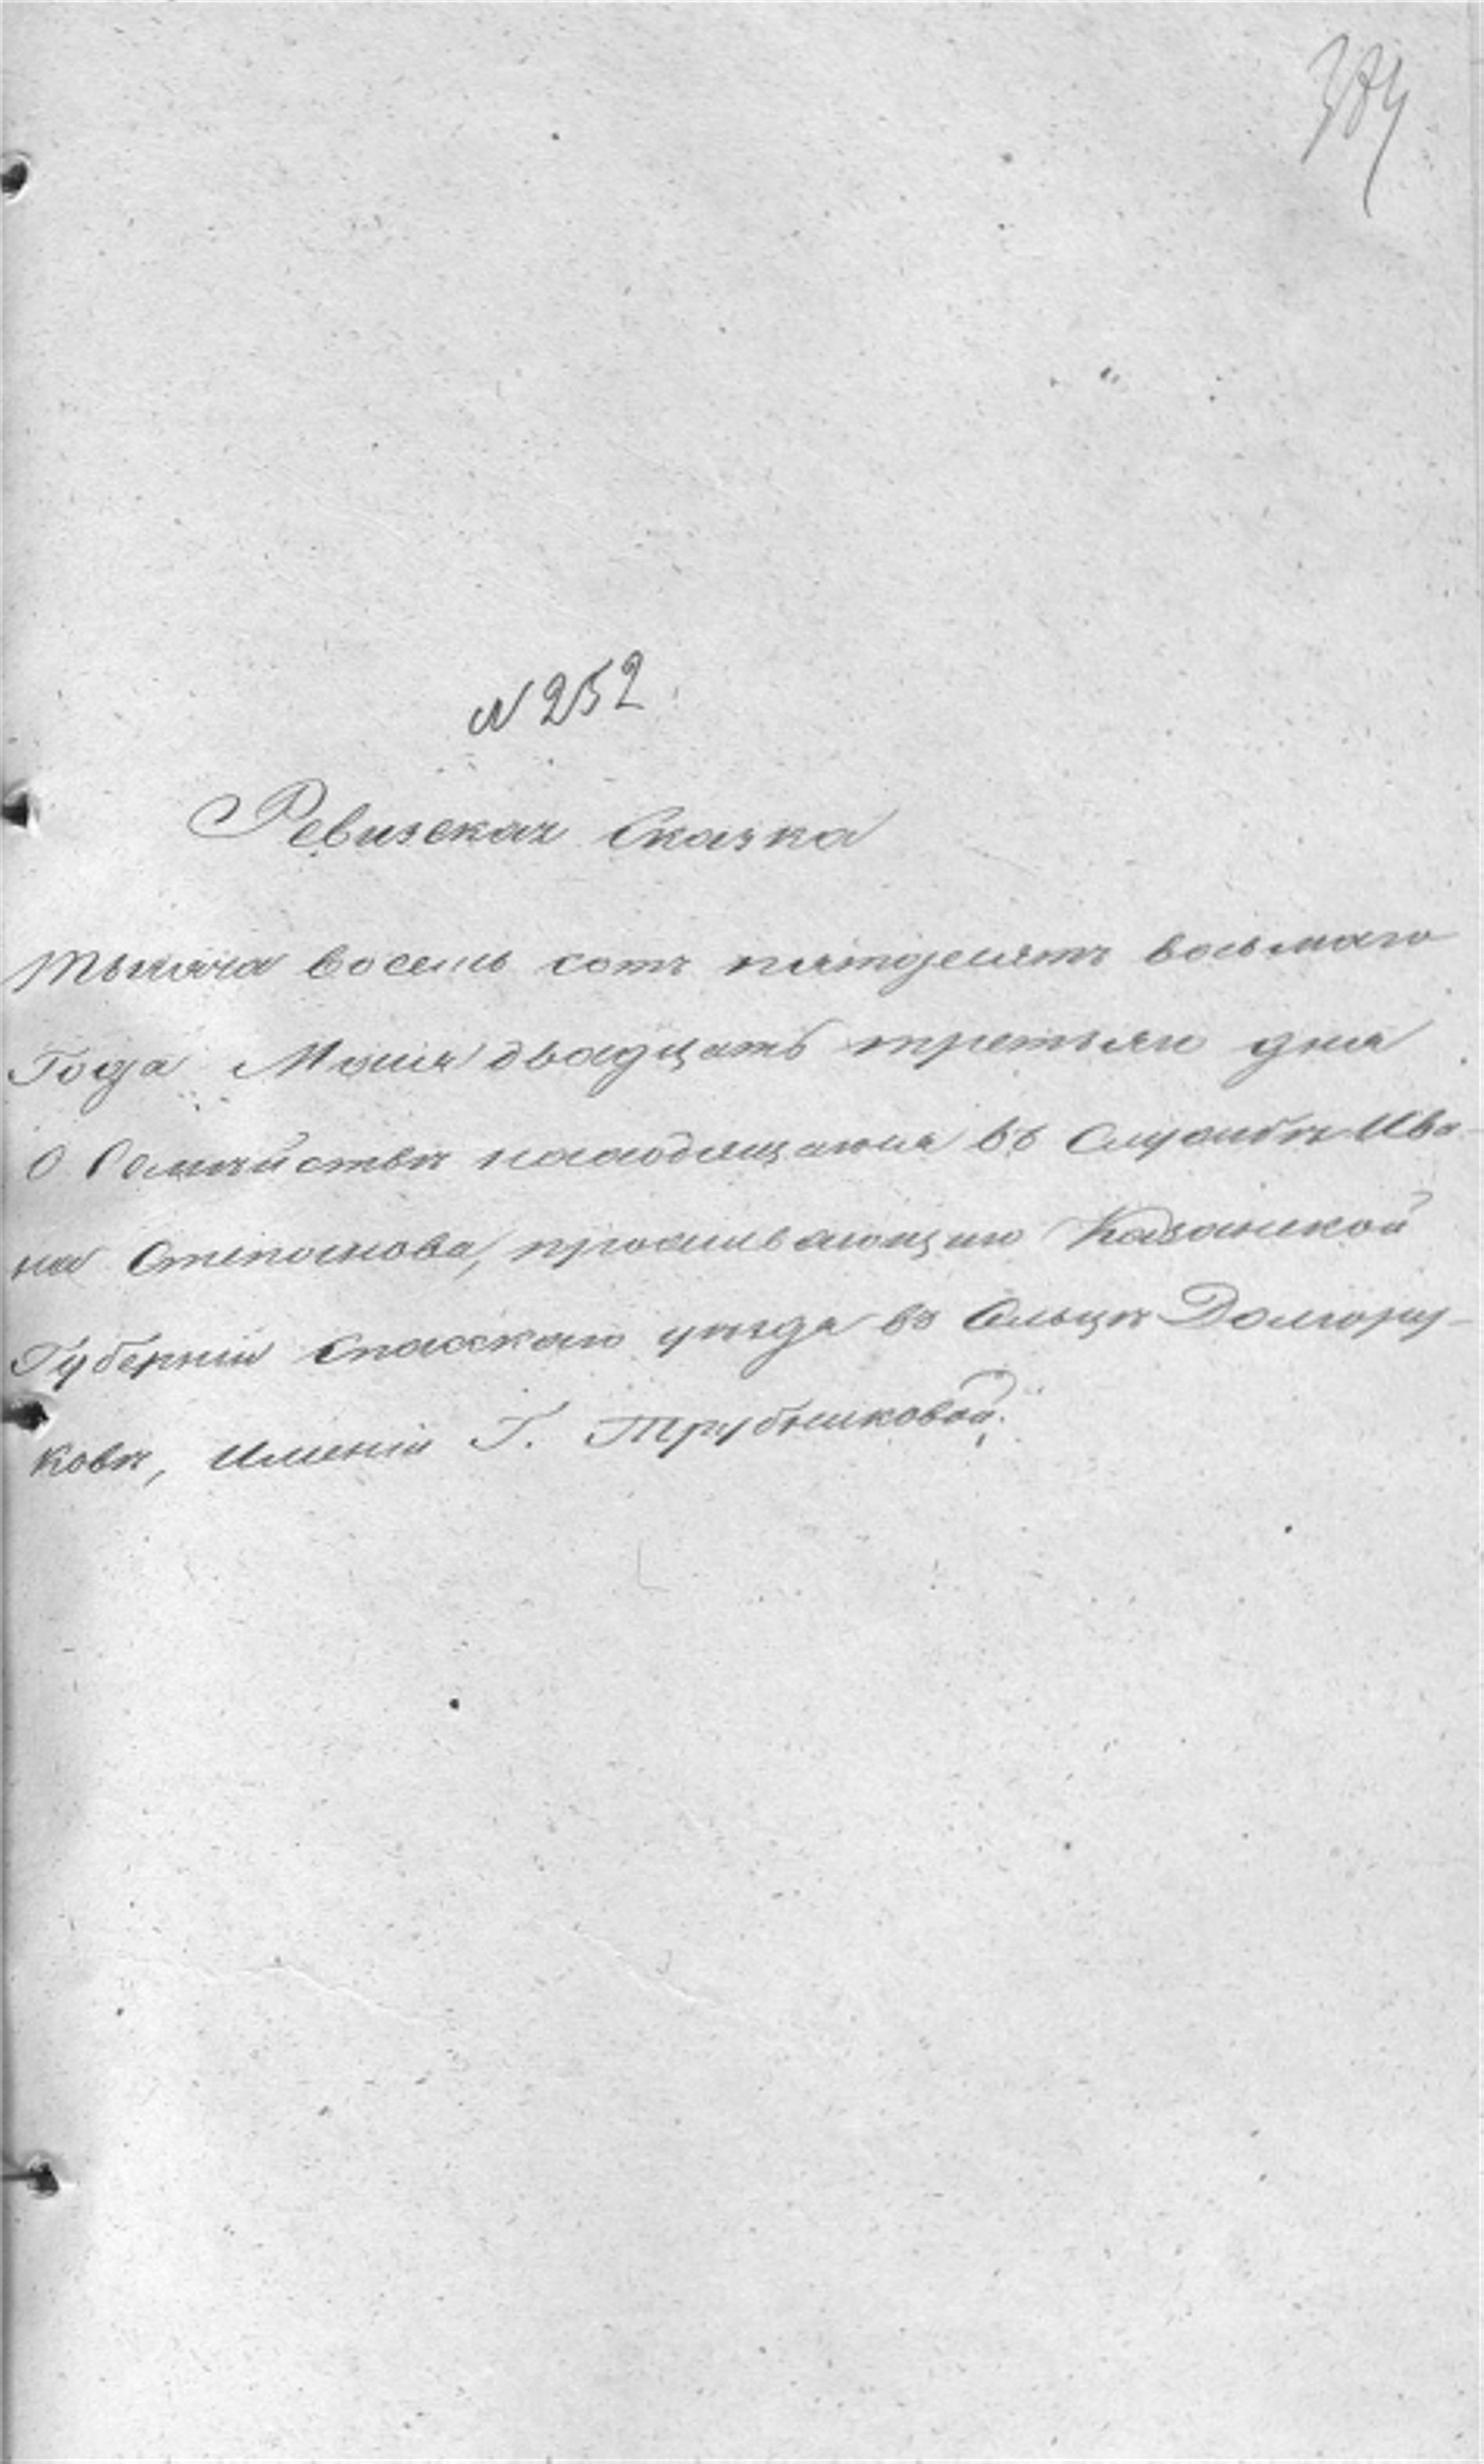 384
№ 252
Ревизская Сказка
Тысяча восемь сотъ пятдесятъ восьмаго
Года Маия двадцать третьяго дня
О Семѣйствѣ находящагося въ Службѣ Ива-
на Степанова, проживающаго Казанской
Губерніи Спасскаго уѣзда въ Сельцѣ Долгору-
ковѣ, Имѣніи Г. Трубниковой.